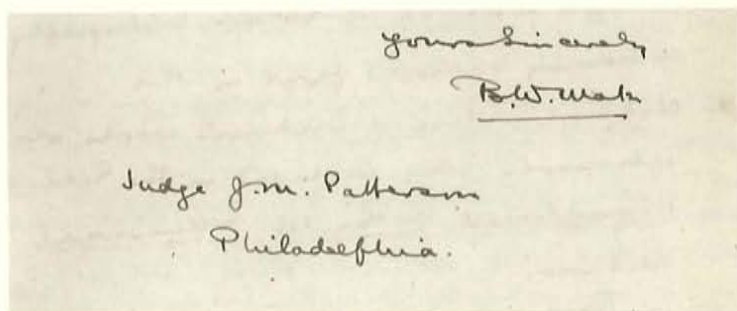 Yours Sincerely
B.W.
Judge J.M. Patterson
Philadelphia.